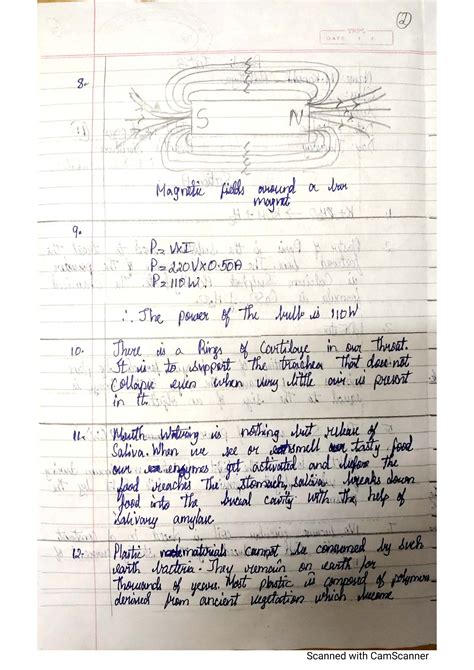 2
DATE
8.
S N
Magnetic fields around a bar
magnet
9.
P = V×I
P = 220V×0.50A
P = 110W
∴ The power of the bulb is 110W
10. There is a Rings of Cartilage in our throat.
It is to support the trachea that does not
Collapse even when very little air is present
in it.
11. Mouth Watering is nothing but release of
Saliva. When we see or smell our tasty food
our enzymes get activated and before the
food reaches the stomach, saliva breaks down
food into the bucal cavity with the help of
salivary amylase.
12. Plastic materials cannot be consumed by such
earth bacteria. They remain on earth for
thousands of years. Most plastic is composed of polymers
derived from ancient vegetation which become
Scanned with CamScanner